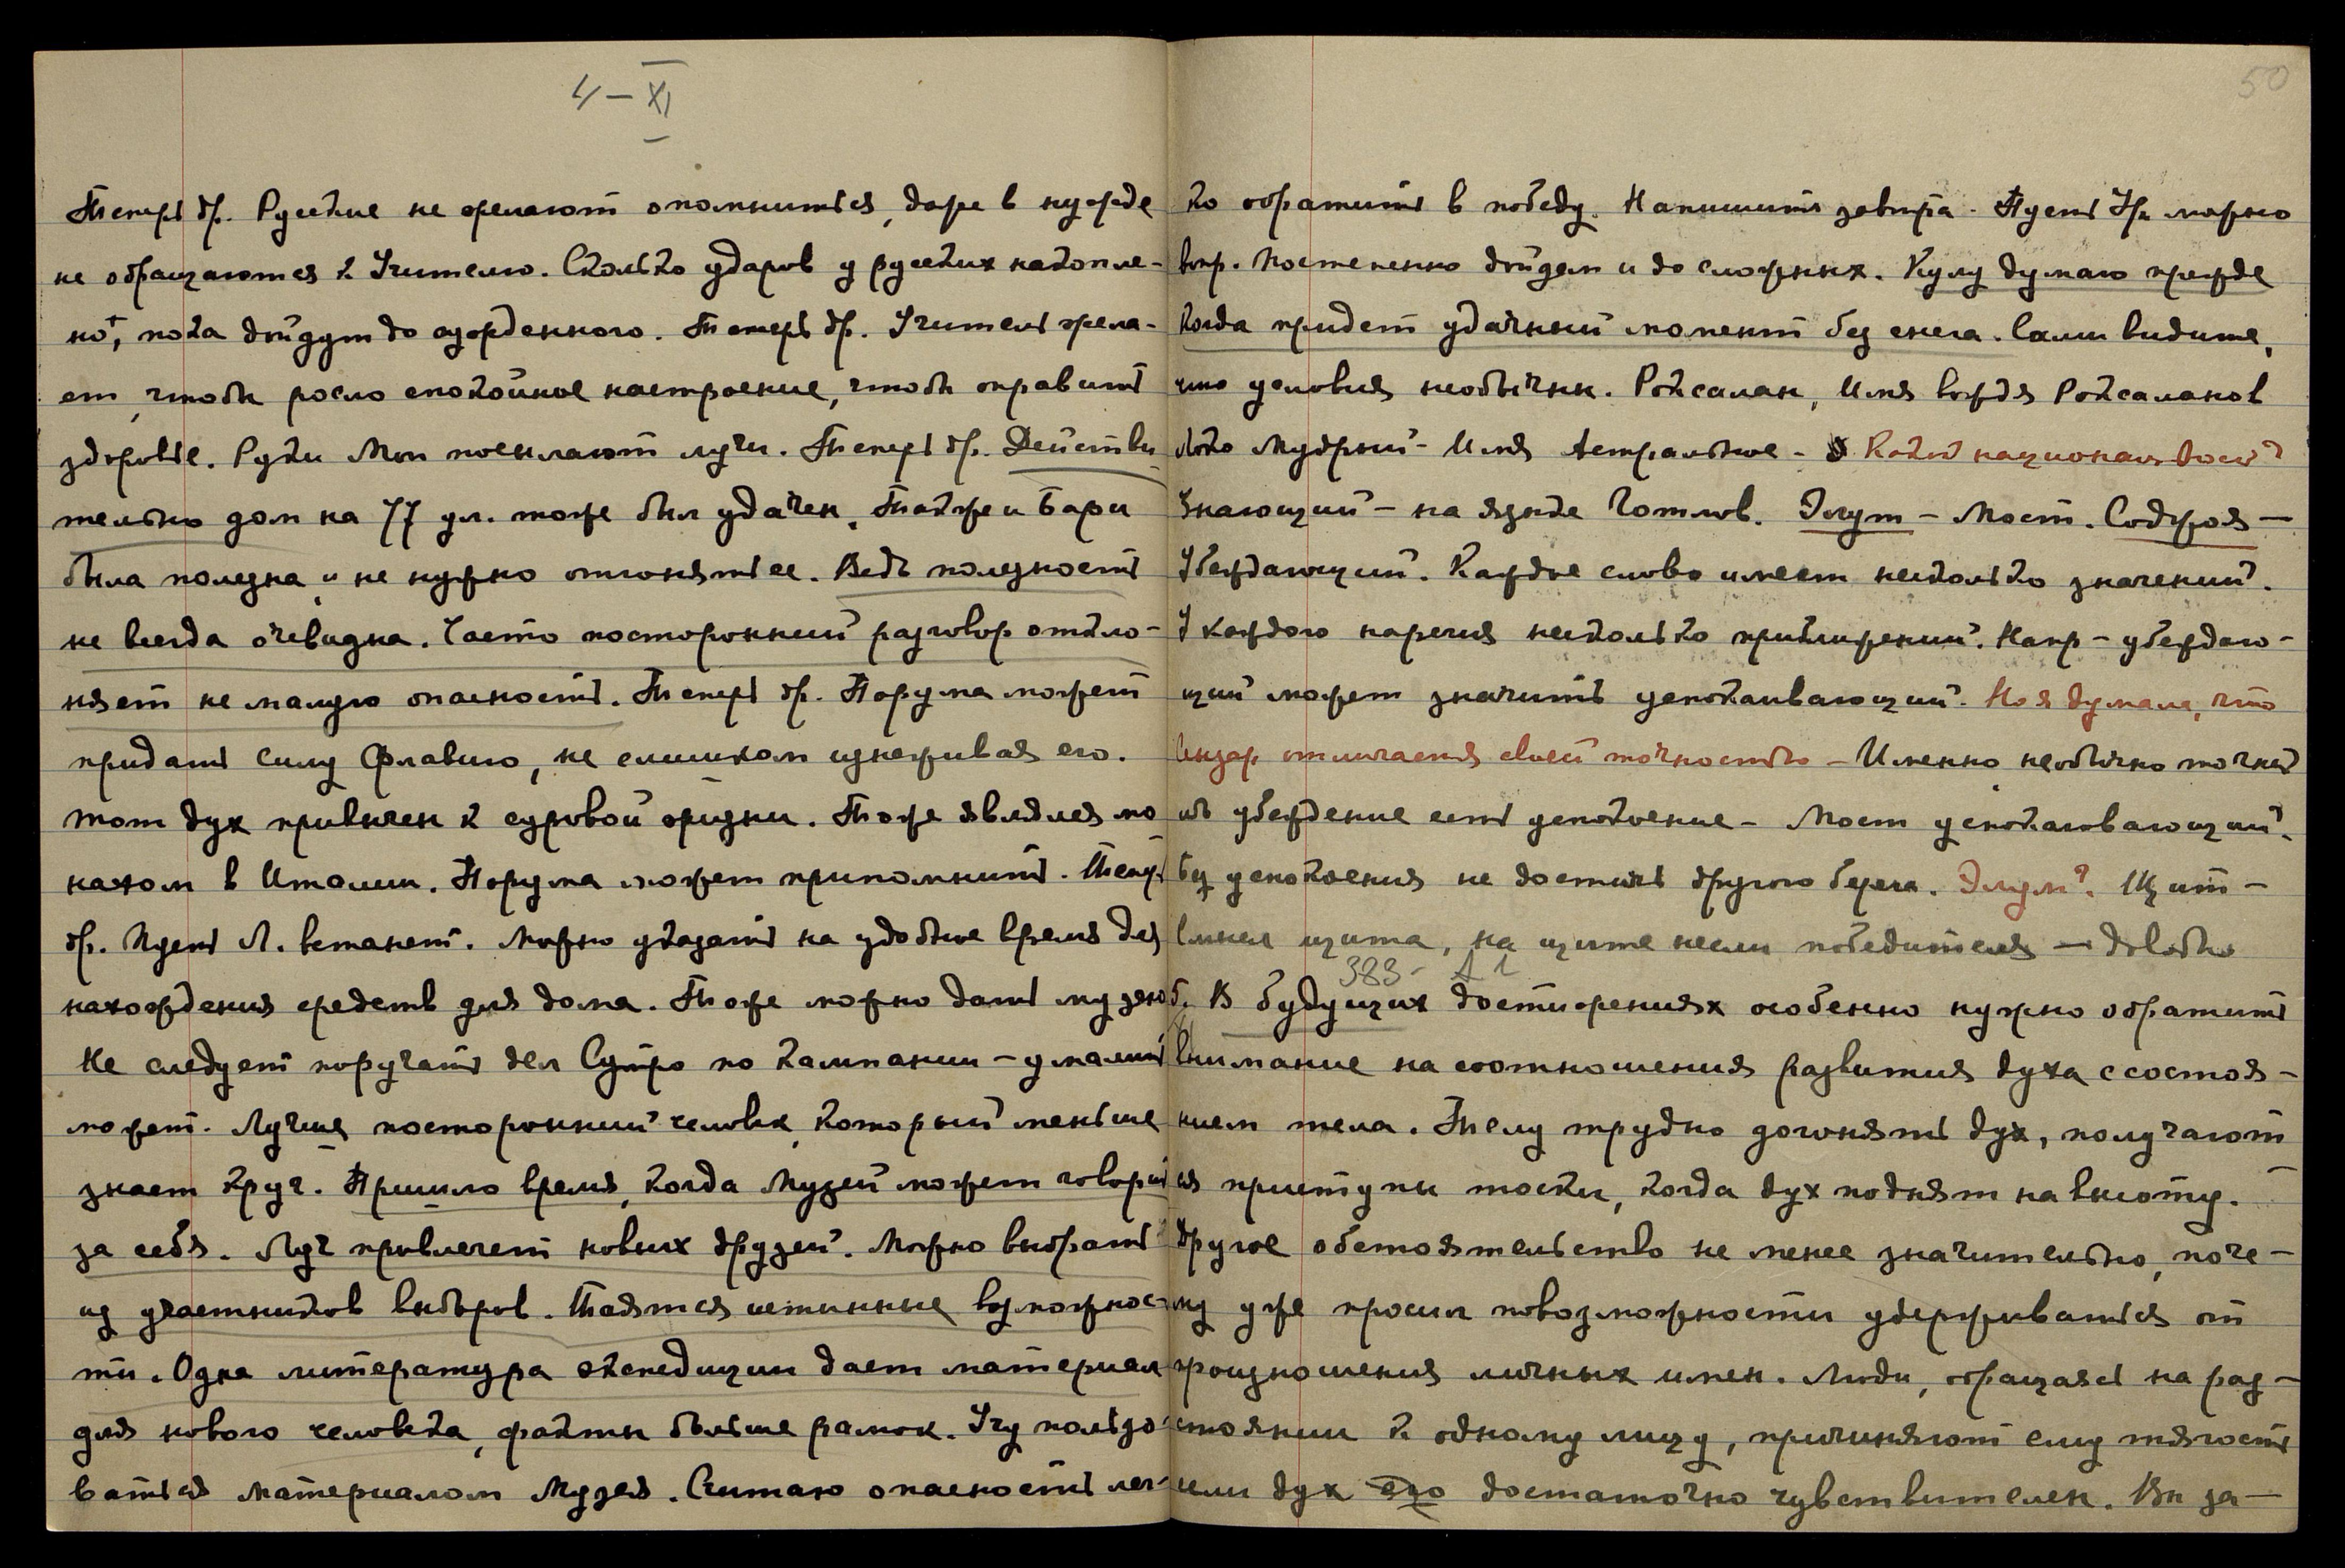 4 – XI
Теперь др. Русские не желают опомниться, даже в нужде
не обращаются к Учителю. Сколько ударов у русских накопле-
но, пока дойдут до сужденного. Теперь др. Учитель жела-
ет, чтобы росло спокойное настроение, чтобы оправить
здоровье. Руки Мои посылают лучи. Теперь др. Действи
тельно дом на 77 ул. тоже был удачен. Также и Бари
была полезна и не нужно отгонять ее. Ведь полезность
не всегда очевидна. Часто посторонний разговор откло-
няет не малую опасность. Теперь др. Порума может
придать силу Флавию, не слишком изнеживая его.
тот дух привычен к суровой жизни. Тоже являлся мо
нахом в Италии. Порума может припомнить. Теперь
др. Пусть Л. встанет. Можно указать на удобное время для
нахождения средств для дома. Тоже можно дать музею
Не следует поручать дел Сутро по кампании – умалить
может. Лучше посторонний человек, который меньше
знает круг. Пришло время, когда Музей может говорить
за себя. Луч привлечет новых друзей. Можно выбрать
из участников выборов. Таятся истинные возможнос-
ти. Одна литература экспедиции дает материал
для нового человека, факты больше рамок. Учу пользо-
ваться материалом Музея. Считаю опасность лег-
50
ко обратить в победу. Напишите завтра – Пусть Ур. можно
вопр. Постепенно дойдем и до сложных. Кулу думаю прежде
когда придет удачный момент без снега. Сами видите,
что условия необычны. Роксалан, Имя вождя Роксаланов
Мудрый – Имя Астральное – Какой национальности?
Знающий – на языке Готлов. Элут – Мост. Соджоя –
Убеждающий. Каждое слово имеет несколько значений.
У каждого наречия несколько приближений. Напр – убеждаю-
щий может значить успокаивающий. Но я думала, что
Сензар отличается своей точностью – Именно необычно точный
ибо убеждение есть успокоение – Мост успокаивающий.
без успокоения не достичь другого берега. Элум? Щит –
вместо щита, на щите несли победителя — довольно
383 – А 1
б. В будущих достижениях особенно нужно обратить
внимание на соотношения развития духа с состоя-
нием тела. Телу трудно догонять дух, получают
ся приступы тоски, когда дух поднят на высоту.
Другое обстоятельство не менее значительно, поче-
му уже просил повозможности удерживаться от
произношения личных имен. Люди, обращаясь на раз-
стоянии к одному лицу, причиняют ему тягость
если дух его достаточно чувствителен. Вы за –